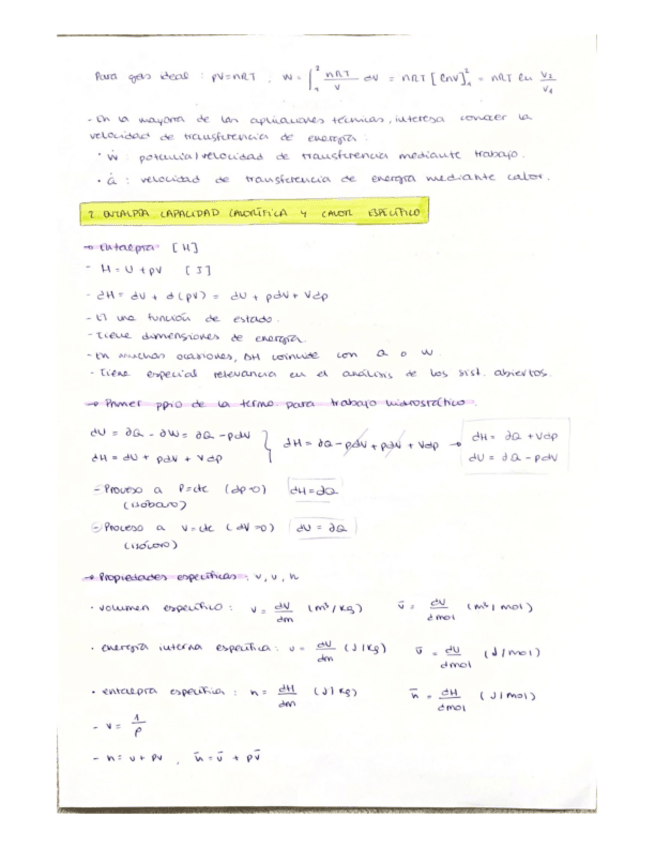 Para gas ideal : pV=nRT , W = ∫₁² nRT/V dV = nRT [lnV]₁² = nRT ln V₂/V₁
- En la mayoría de las aplicaciones técnicas, interesa conocer la
velocidad de transferencia de energía :
· Ẇ : potencia/velocidad de transferencia mediante trabajo.
· Q̇ : velocidad de transferencia de energía mediante calor.
2. ENTALPÍA CAPACIDAD CALORÍFICA Y CALOR ESPECÍFICO
→ Entalpía [H]
- H = U + pV [J]
- dH = dU + d(pV) = dU + pdV + Vdp
- Es una función de estado.
- Tiene dimensiones de energía.
- En muchas ocasiones, ΔH coincide con Q o W.
- Tiene especial relevancia en el análisis de los sist. abiertos.
→ Primer ppio de la termo para trabajo hidrostático.
dU = ∂Q - ∂W = ∂Q - pdV
dH = dU + pdV + Vdp
} dH = ∂Q - pdV + pdV + Vdp → dH = ∂Q + Vdp
dU = ∂Q - pdV
- Proceso a P=cte (dp=0) dH=∂Q
(isóbaro)
- Proceso a V=cte (dV=0) dU = ∂Q
(isócoro)
→ Propiedades específicas : v, u, h
· volumen específico : v = dV/dm (m³/kg) v̄ = dV/dmol (m³/mol)
· energía interna específica : u = dU/dm (J/kg) ū = dU/dmol (J/mol)
· entalpía específica : h = dH/dm (J/kg) h̄ = dH/dmol (J/mol)
- v = 1/ρ
- h = u + pv , h̄ = ū + pv̄